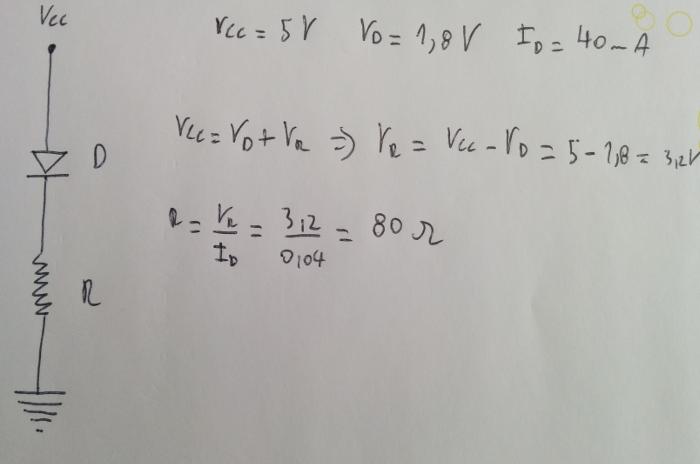 Vcc
Vcc = 5V VD = 1,8V ID = 40mA
Vcc = VD + VR ⇒ VR = Vcc - VD = 5 - 1,8 = 3,2V
D
R = VR/ID = 3,2/0,04 = 80 Ω
R